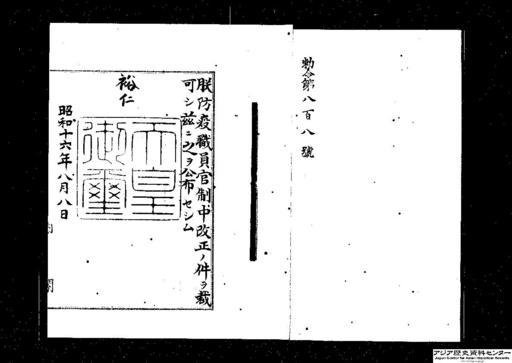 勅令第八百八號
朕防疫職員官制中改正ノ件ヲ裁
可シ茲ニ之ヲ公布セシム
裕仁
天皇
御璽
昭和十六年八月八日
アジア歴史資料センター
Japan Center for Asian Historical Records